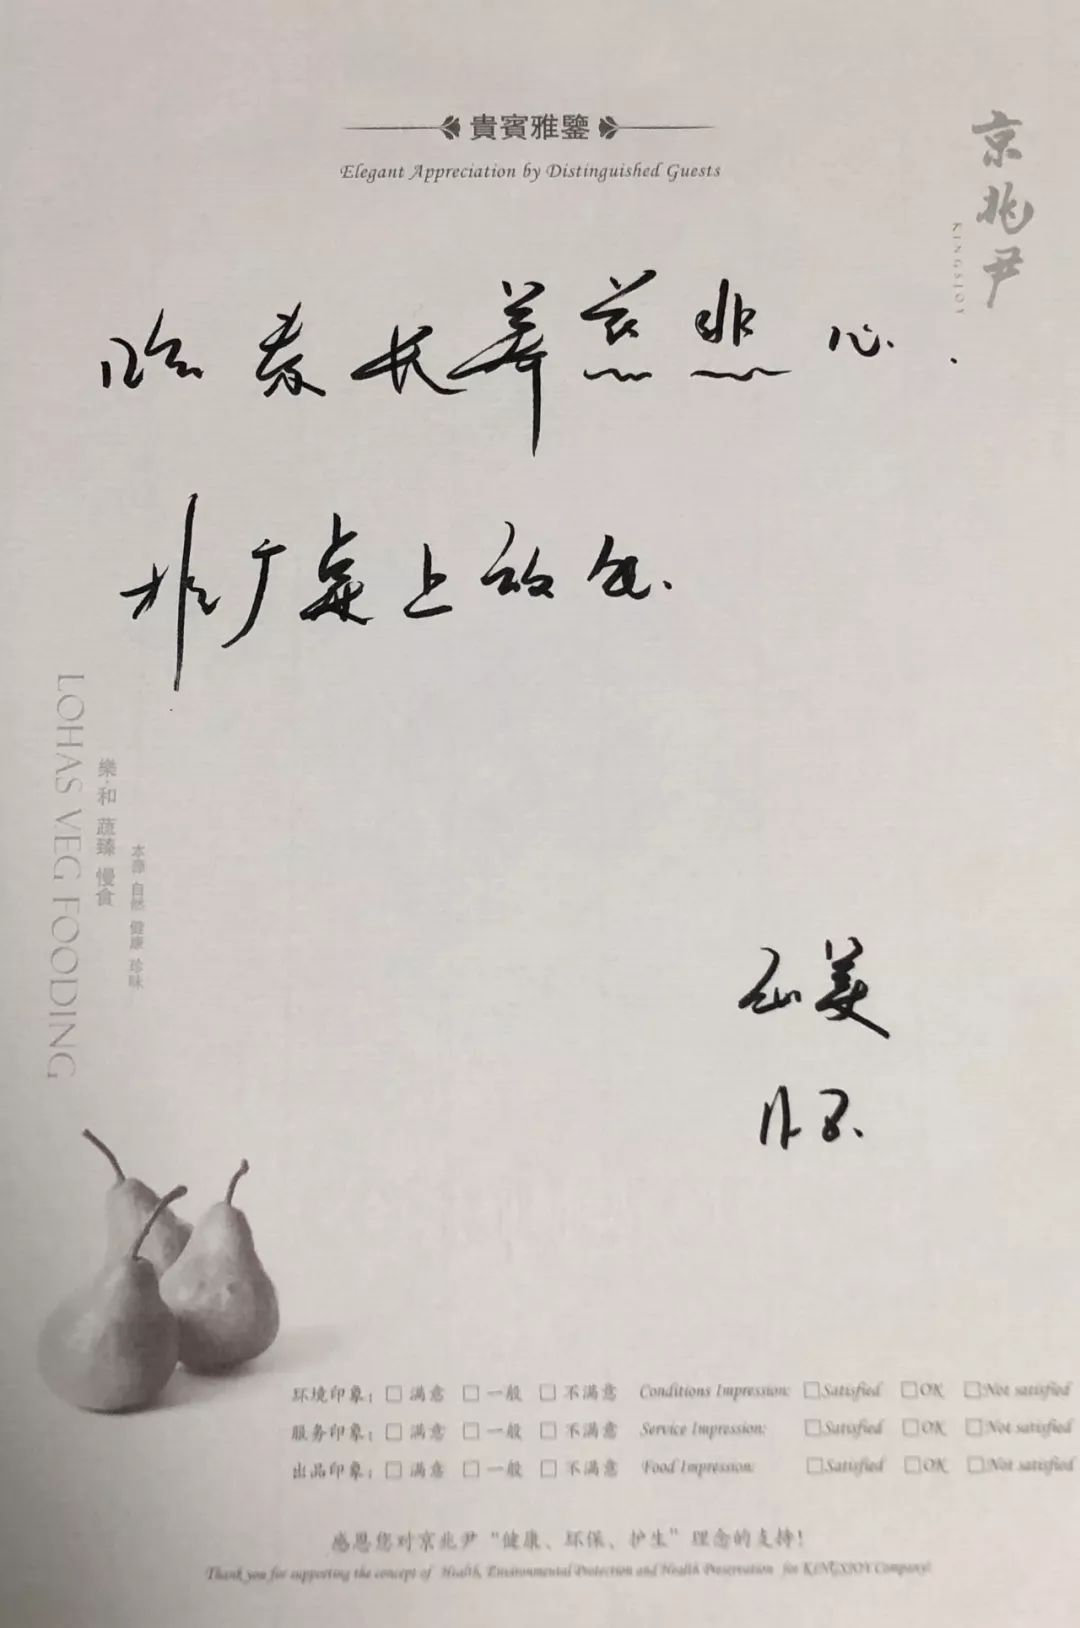 貴賓雅鑒
Elegant Appreciation by Distinguished Guests
京兆尹
KINGSJOY
素长养慈悲心.
推广桌上放
LOHAS VEG FOODING
樂·和 蔬臻 慢食
本源 自然 健康 珍味
美
环境印象: □ 满意 □ 一般 □ 不满意 Conditions Impression: □Satisfied □OK □Not satisfied
服务印象: □ 满意 □ 一般 □ 不满意 Service Impression: □Satisfied □OK □Not satisfied
出品印象: □ 满意 □ 一般 □ 不满意 Food Impression: □Satisfied □OK □Not satisfied
感恩您对京兆尹“健康、环保、护生”理念的支持!
Thank you for supporting the concept of Health, Environmental Protection and Health Preservation for KINGSJOY Company!